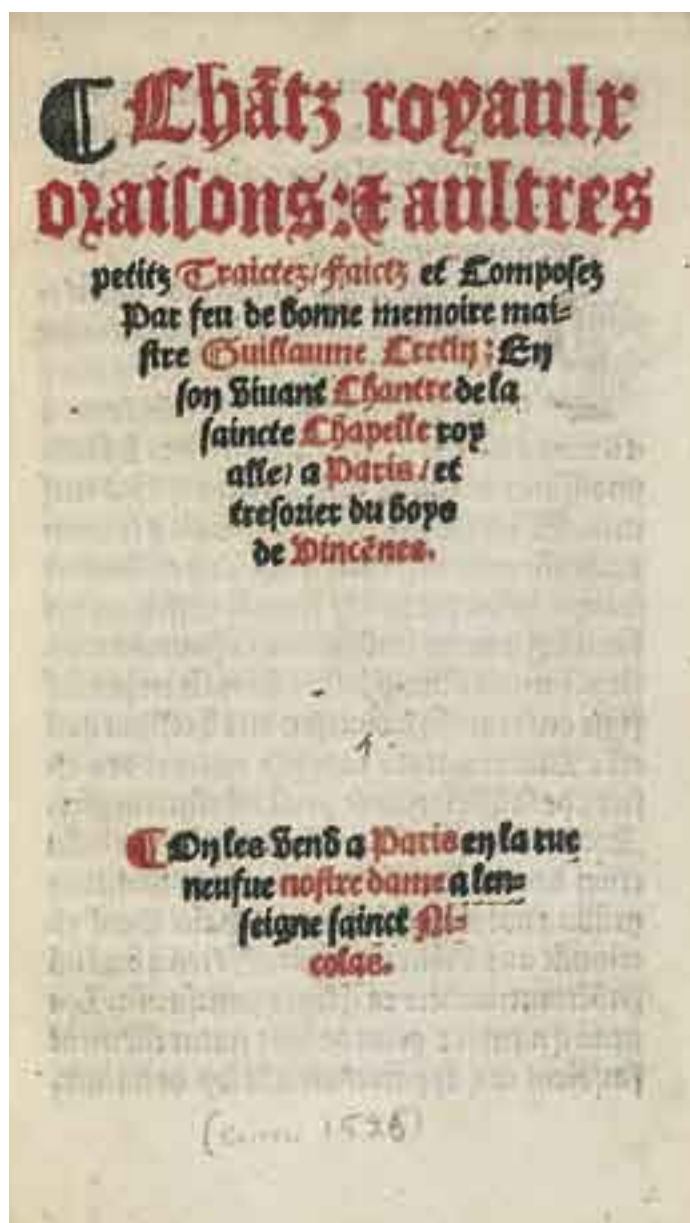 ¶ Chãtz royaulx
oraisons: & aultres
petitz Traictez/ faictz et Composez
Par feu de bonne memoire mai-
stre Guillaume Cretin: En
son vivant Chantre de la
saincte Chapelle roy
alle/ a Paris/ et
tresorier du boys
de Vincẽnes.
1
¶ On les vend a Paris en la rue
neufue nostre dame a len-
seigne sainct Ni-
colas.